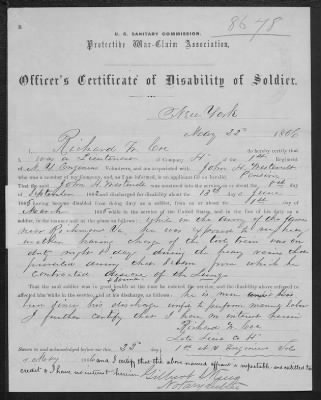 8678
U. S. SANITARY COMMISSION.
Protective War-Claim Association,
Officer's Certificate of Disability of Soldier.
New York
May 22d 1866
I, Richard W. Coe do hereby certify that
I was a Lieutenant of Company H. 1st Regiment
N. Y. Engineers Volunteers, and was acquainted with John H.
who was a member of my Company, and, as I am informed, is an applicant for a
Pension
That the said John H. was mustered into the service on the 8th day
of September 1862 and discharged the 13th June
1865 having become disabled from doing duty as a soldier, from or about the 1st day of
March 1865 while in the service of the United States, and in the line of his duty as
soldier, in the manner and under the circumstances as follows: while in the Army of the James
near Richmond Va he was exposed to very heavy
weather having charge of the was on
duty night & day during the heavy rains that
prevailed during that from which he
contracted disease of the Lungs
That said soldier was in good health at the time he entered the service, and the disability above referred to
affected him while in the service, and at his discharge, as follows: he is now
since his discharge unfit to perform manual labor
I further certify that I have no interest herein
Richard W. Coe
Late Lieut Co H
1st N Y Engineers Vols
Sworn to and acknowledged before me this 22d day
of May 1866 and I certify that the above named affiant is respectable and entitled to
credit & I have no interest herein
Notary Public